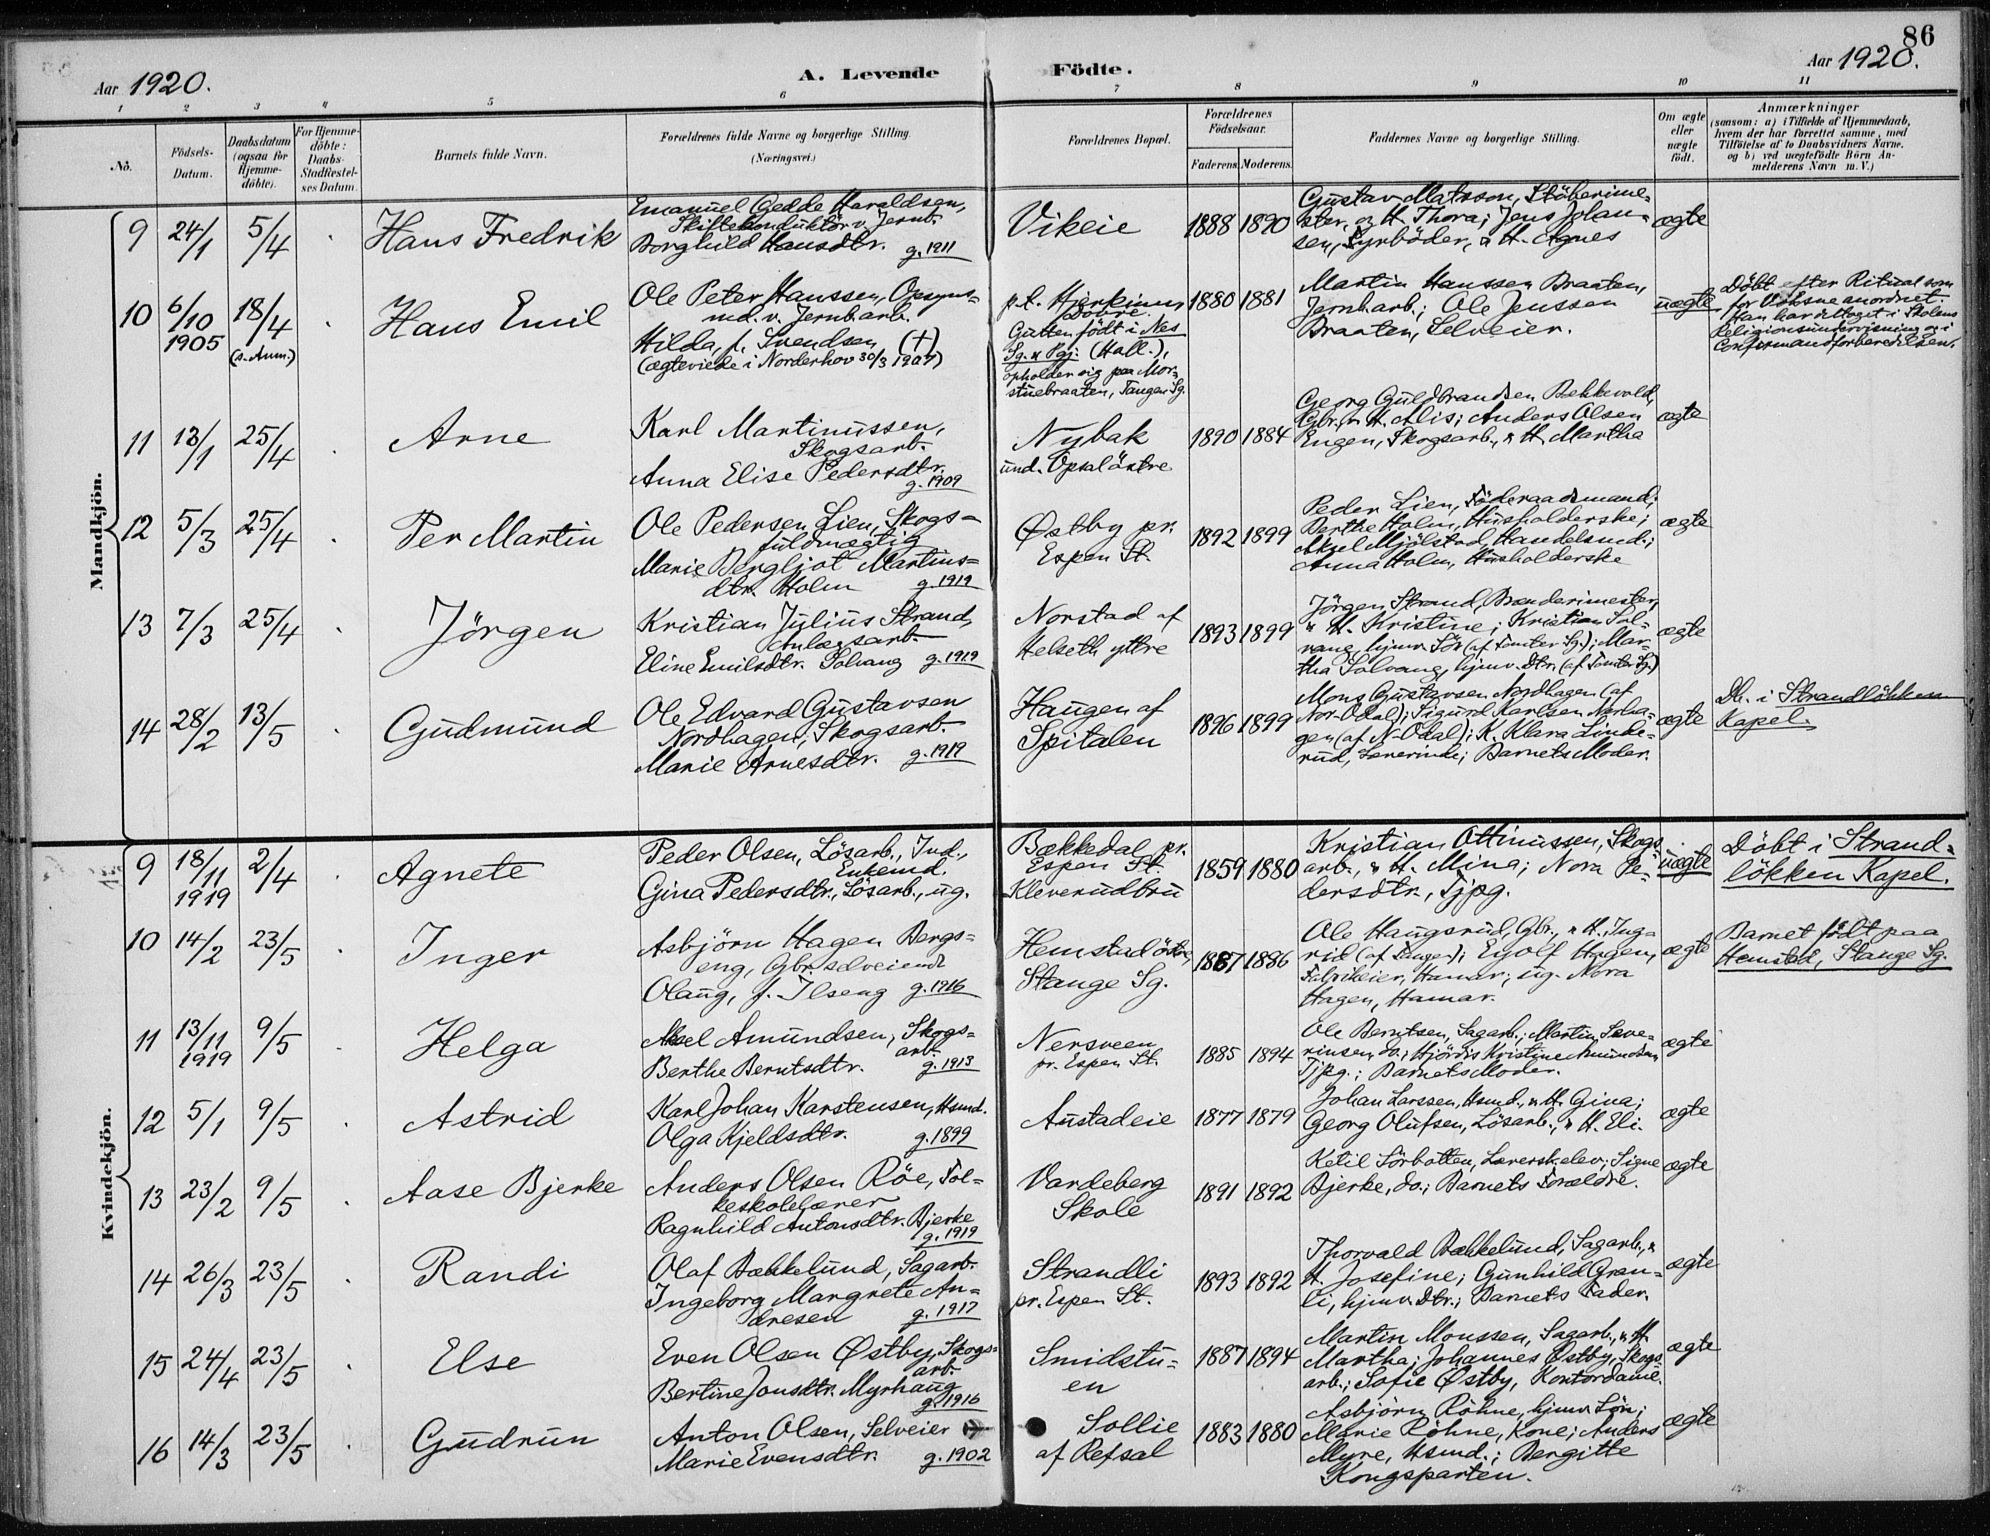 86
Aar 1920.
A. Levende Födte.
Aar 1920.
1 2 3 4 5 6 7 8 9 10 11
No.
Födsels-
Datum.
Daabsdatum
(ogsaa for
Hjemme-
döbte).
For Hjemme-
döbte:
Daabs-
Stadfestel-
ses Datum.
Barnets fulde Navn.
Forældrenes fulde Navne og borgerlige Stilling.
(Næringsvei.)
Forældrenes Bopæl.
Forældrenes
Födselsaar.
Faderens. Moderens.
Faddernes Navne og borgerlige Stilling.
Om ægte
eller
uægte
födt.
Anmærkninger
(saasom: a) i Tilfælde af Hjemmedaab,
hvem der har forrettet samme, med
Tilföielse af to Daabsvidners Navne,
og b) ved uægtefödte Börn An-
melderens Navn m.V.)
Mandkjön.
9 24/1 5/4 Hans Fredrik
Emanuel Gedde Haraldsen,
Skiftekonduktör v. Jernb.
Borghild Hansdtr. g. 1911
Vikeie
1888 1890
Gustav Matsson, Stöberime-
ster, og H. Thora; Jens Johan-
sen, Fyrböder, " H. Agnes
ægte
10 6/10 1905 18/4 (s. Anm.) Hans Emil
Ole Peter Hanssen, Opsyns-
md. v. Jernb.arb.
Hilda, f. Svendsen (+)
(ægteviede i Norderhov 30/3 1907)
p.t. Hjerkinn,
Dovre.
Gutten födt i Nes
Sg. " Pgj. (Hall.),
opholder sig paa Mor-
stuebraaten, Tangen Sg.
1880 1881
Martin Hanssen Braaten,
Jernb.arb.; Ole Jenssen
Braaten, Selveier.
uægte
Döbt efter Ritual som
for Voksne anordnet.
Han har deltaget i Skolens
Religionsundervisning og i
Confirmandforberedelsen.
11 13/1 25/4 Arne
Karl Martinussen,
Skogsarb.
Anna Elise Pedersdtr.
g. 1909
Nybak
und. Opsal östre
1890 1884
Georg Guldbrandsen Bekkevold,
Gbr., " H. Alis; Anders Olsen
Engen, Skogsarb., " H. Martha
ægte
12 5/3 25/4 Per Martin
Ole Pedersen Lien, Skogs-
fuldmægtig
Marie Bergljot Martins-
dtr. Holm g. 1919
Østby pr.
Espen St.
1892 1899
Peder Lien, Föderaadsmand;
Berthe Holm, Husholderske;
Aksel Mjölstad, Handelsmd.;
Anna Holm, Husholderske
ægte
13 7/3 25/4 Jörgen
Kristian Julius Strand,
Anlægsarb.
Eline Emilsdtr. Solvang g. 1919
Norstad af
Helseth yttre
1893 1899
Jörgen Strand, Brænderimester,
" H. Kristine; Kristian Sol-
vang, hjmv. Sön (af Tomter Sg.); Mar-
tha Solvang, hjmv. Dtr. (af Tomter Sg.)
ægte
14 28/2 13/5 Gudmund
Ole Edvard Gustavsen
Nordhagen, Skogsarb.
Marie Arnesdtr. g. 1919
Haugen af
Spitalen
1896 1899
Mons Gustavsen Nordhagen (af
Nor-Odal); Sigurd Karlsen Norha-
gen (af N-Odal); K. Klara Linde-
rud, Lærerinde; Barnets Moder.
ægte
Db. i Strandlökken
Kapel.
Kvindekjön.
9 18/11 1919 2/4 Agnete
Peder Olsen, Lösarb., Ind.,
Enkemd.
Gina Pedersdtr., Lösarb., ug.
Bækkedal pr.
Espen St.
Kleverudbru
1859 1880
Kristian Ottinussen, Skogs-
arb., " H. Mina; Nora Pe-
dersdtr., Tjpg.
uægte
Döbt i Strand-
lökken Kapel.
10 14/2 23/5 Inger
Asbjörn Hagen Bergs-
eng, Gbr. selveiende
Olaug, f. Ilseng g. 1916
Hemstad östre,
Stange Sg.
1887 1886
Ole Haugsrud, Gbr., " H. Inga
rud (af Tangen); Eyolf Hagen,
Fabrikeier, Hamar; ug. Nora
Hagen, Hamar.
ægte
Barnet födt paa
Hemstad, Stange Sg.
11 13/11 1919 9/5 Helga
Aksel Amundsen, Skogs-
arb.
Berthe Berntsdtr. g. 1913
Nersveen
pr. Espen St.
1885 1894
Ole Berntsen, Sagarb.; Martin Seve-
rinsen, do.; Hjördis Kristine Amundsen,
Tjpg.; Barnets Moder.
ægte
12 5/1 9/5 Astrid
Karl Johan Karstensen, Hsmd.
Olga Kjeldsdtr. g. 1899
Austadeie
1877 1879
Johan Larssen, Hsmd., " H. Gina;
Georg Olufsen, Lösarb., " H. Eli.
ægte
13 23/2 9/5 Aase Bjerke
Anders Olsen Röe, Fol-
keskolelærer
Ragnhild Antonsdtr. Bjerke
g. 1919
Vardeberg
Skole
1891 1892
Ketil Sörbotten, Lærersk.elev; Signe
Bjerke, do.; Barnets Forældre.
ægte
14 26/3 23/5 Randi
Olaf Bækkelund, Sagarb.
Ingeborg Margrete An-
dresen g. 1917
Strandli
pr. Espen St.
1893 1892
Thorvald Bækkelund, Sagarb., "
H. Josefine; Gunhild Gran-
li, hjmv. Dtr.; Barnets Fader.
ægte
15 24/4 23/5 Else
Even Olsen Østby, Skogs-
arb.
Bertine Jonsdtr. Myrhaug
g. 1916
Smidstu-
en
1887 1894
Martin Monssen, Sagarb., " H.
Martha; Johannes Østby, Skogs-
arb.; Sofie Østby, Kontordame.
ægte
16 14/3 23/5 Gudrun
Anton Olsen, Selveier
Marie Evensdtr. g. 1902
Sollie
af Refsal
1883 1880
Asbjörn Röhne, hjmv. Sön;
Marie Röhne, Kone; Anders
Myre, Hsmd.; Bergitte
Kongsparten.
ægte